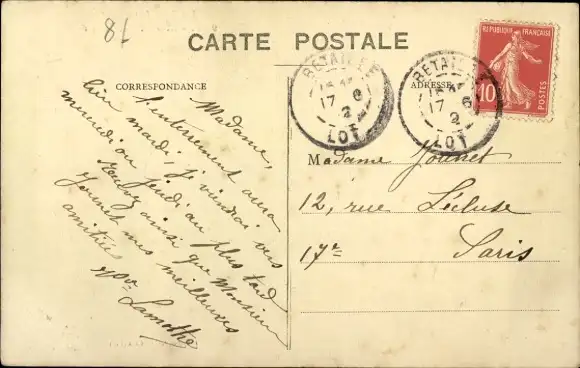 81
CARTE POSTALE
CORRESPONDANCE
ADRESSE
REPUBLIQUE FRANÇAISE
10
POSTES
BETAILLE
17 6
2
LOT
BETAILLE
17 6
2
LOT
Madame,
l'enterrement aura
lieu mardi, je viendrai vers
mercredi ou jeudi au plus tard
Recevez ainsi que Monsieur
Jounet mes meilleures
amitiés
Lamothe
Madame Jounet
12, rue Lécluse
17e
Paris